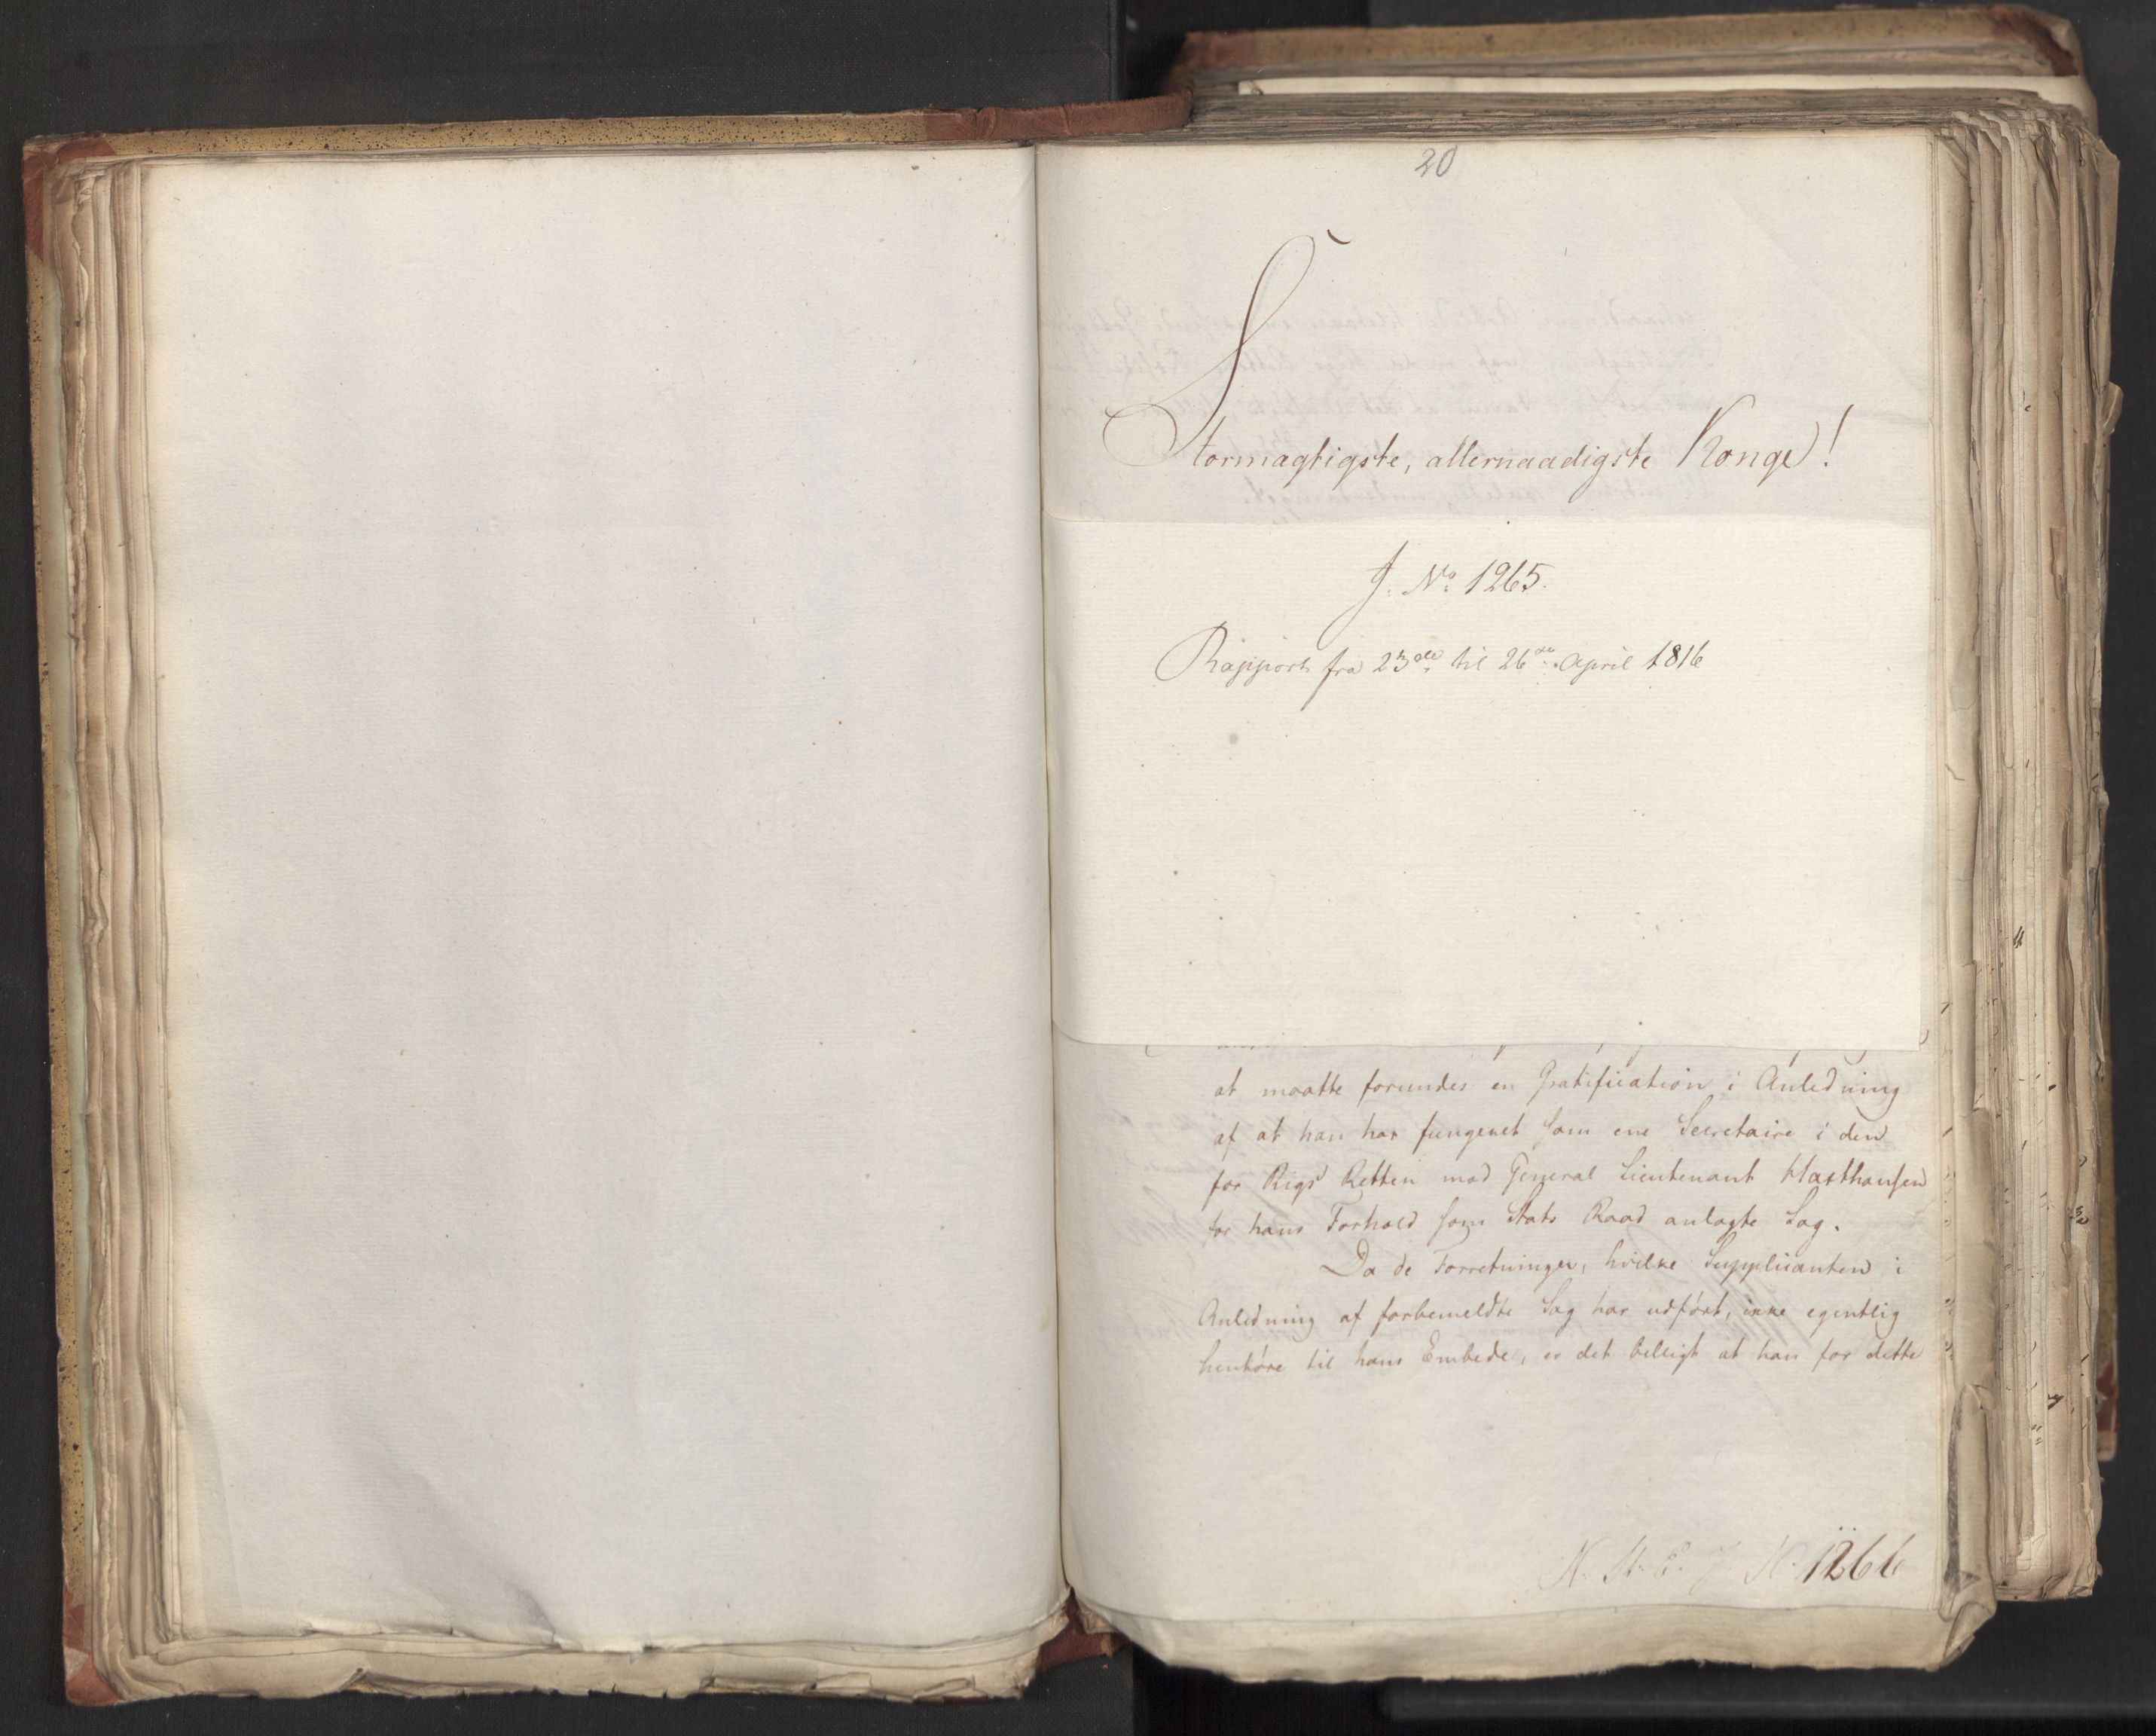 20
Stormagtigste, allernaadigste Konge!
J. No 1265.
Rapport fra 23de til 26de April 1816
at maatte forundes en Gratification i Anledning
af at han har fungeret som ene Secretaire i den
for Rigs Retten mod General Lieutenant Haxthausen
for hans Forhold som Stats Raad anlagte Sag.
Da de Forretninger, hvilke Supplicanten i
Anledning af forbemeldte Sag har udført, ikke egentlig
henhøre til hans Embede, er det billigt at han for dette
N. St. E. J. N. 1266